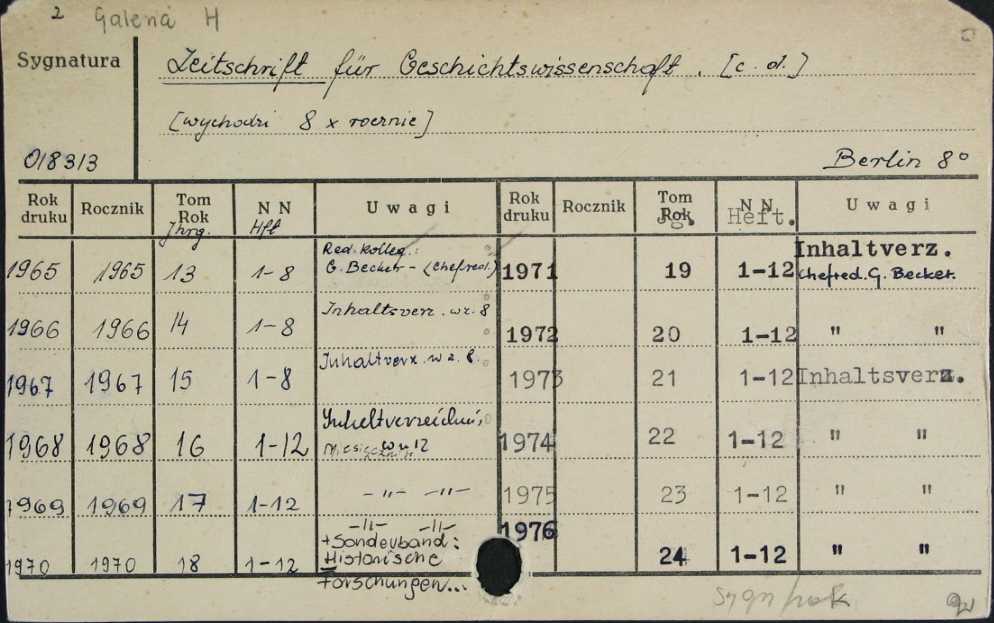 2 Galena H
Sygnatura
Zeitschrift für Geschichtswissenschaft. [c. d.]
[wychodzi 8 x rocznie]
0/8313
Berlin 8°
Rok druku Rocznik Tom Rok Jhrg. N N Hft U w a g i Rok druku Rocznik Tom Rok Jg. N N Heft. U w a g i
1965 1965 13 1-8 Red. Kolleg.: G. Becker - (Chefred.) 1971 19 1-12 Inhaltverz. Chefred. G. Becker.
1966 1966 14 1-8 Inhaltsverz. w z. 8 1972 20 1-12 " "
1967 1967 15 1-8 Inhaltverz. w z. 8. 1973 21 1-12 Inhaltsverz.
1968 1968 16 1-12 w n 12 1974 22 1-12 " "
1969 1969 17 1-12 -"- -"- 1975 23 1-12 " "
1970 1970 18 1-12 -"- -"- 1976 24 1-12 " "
+Sonderband:
Historische
Forschungen...